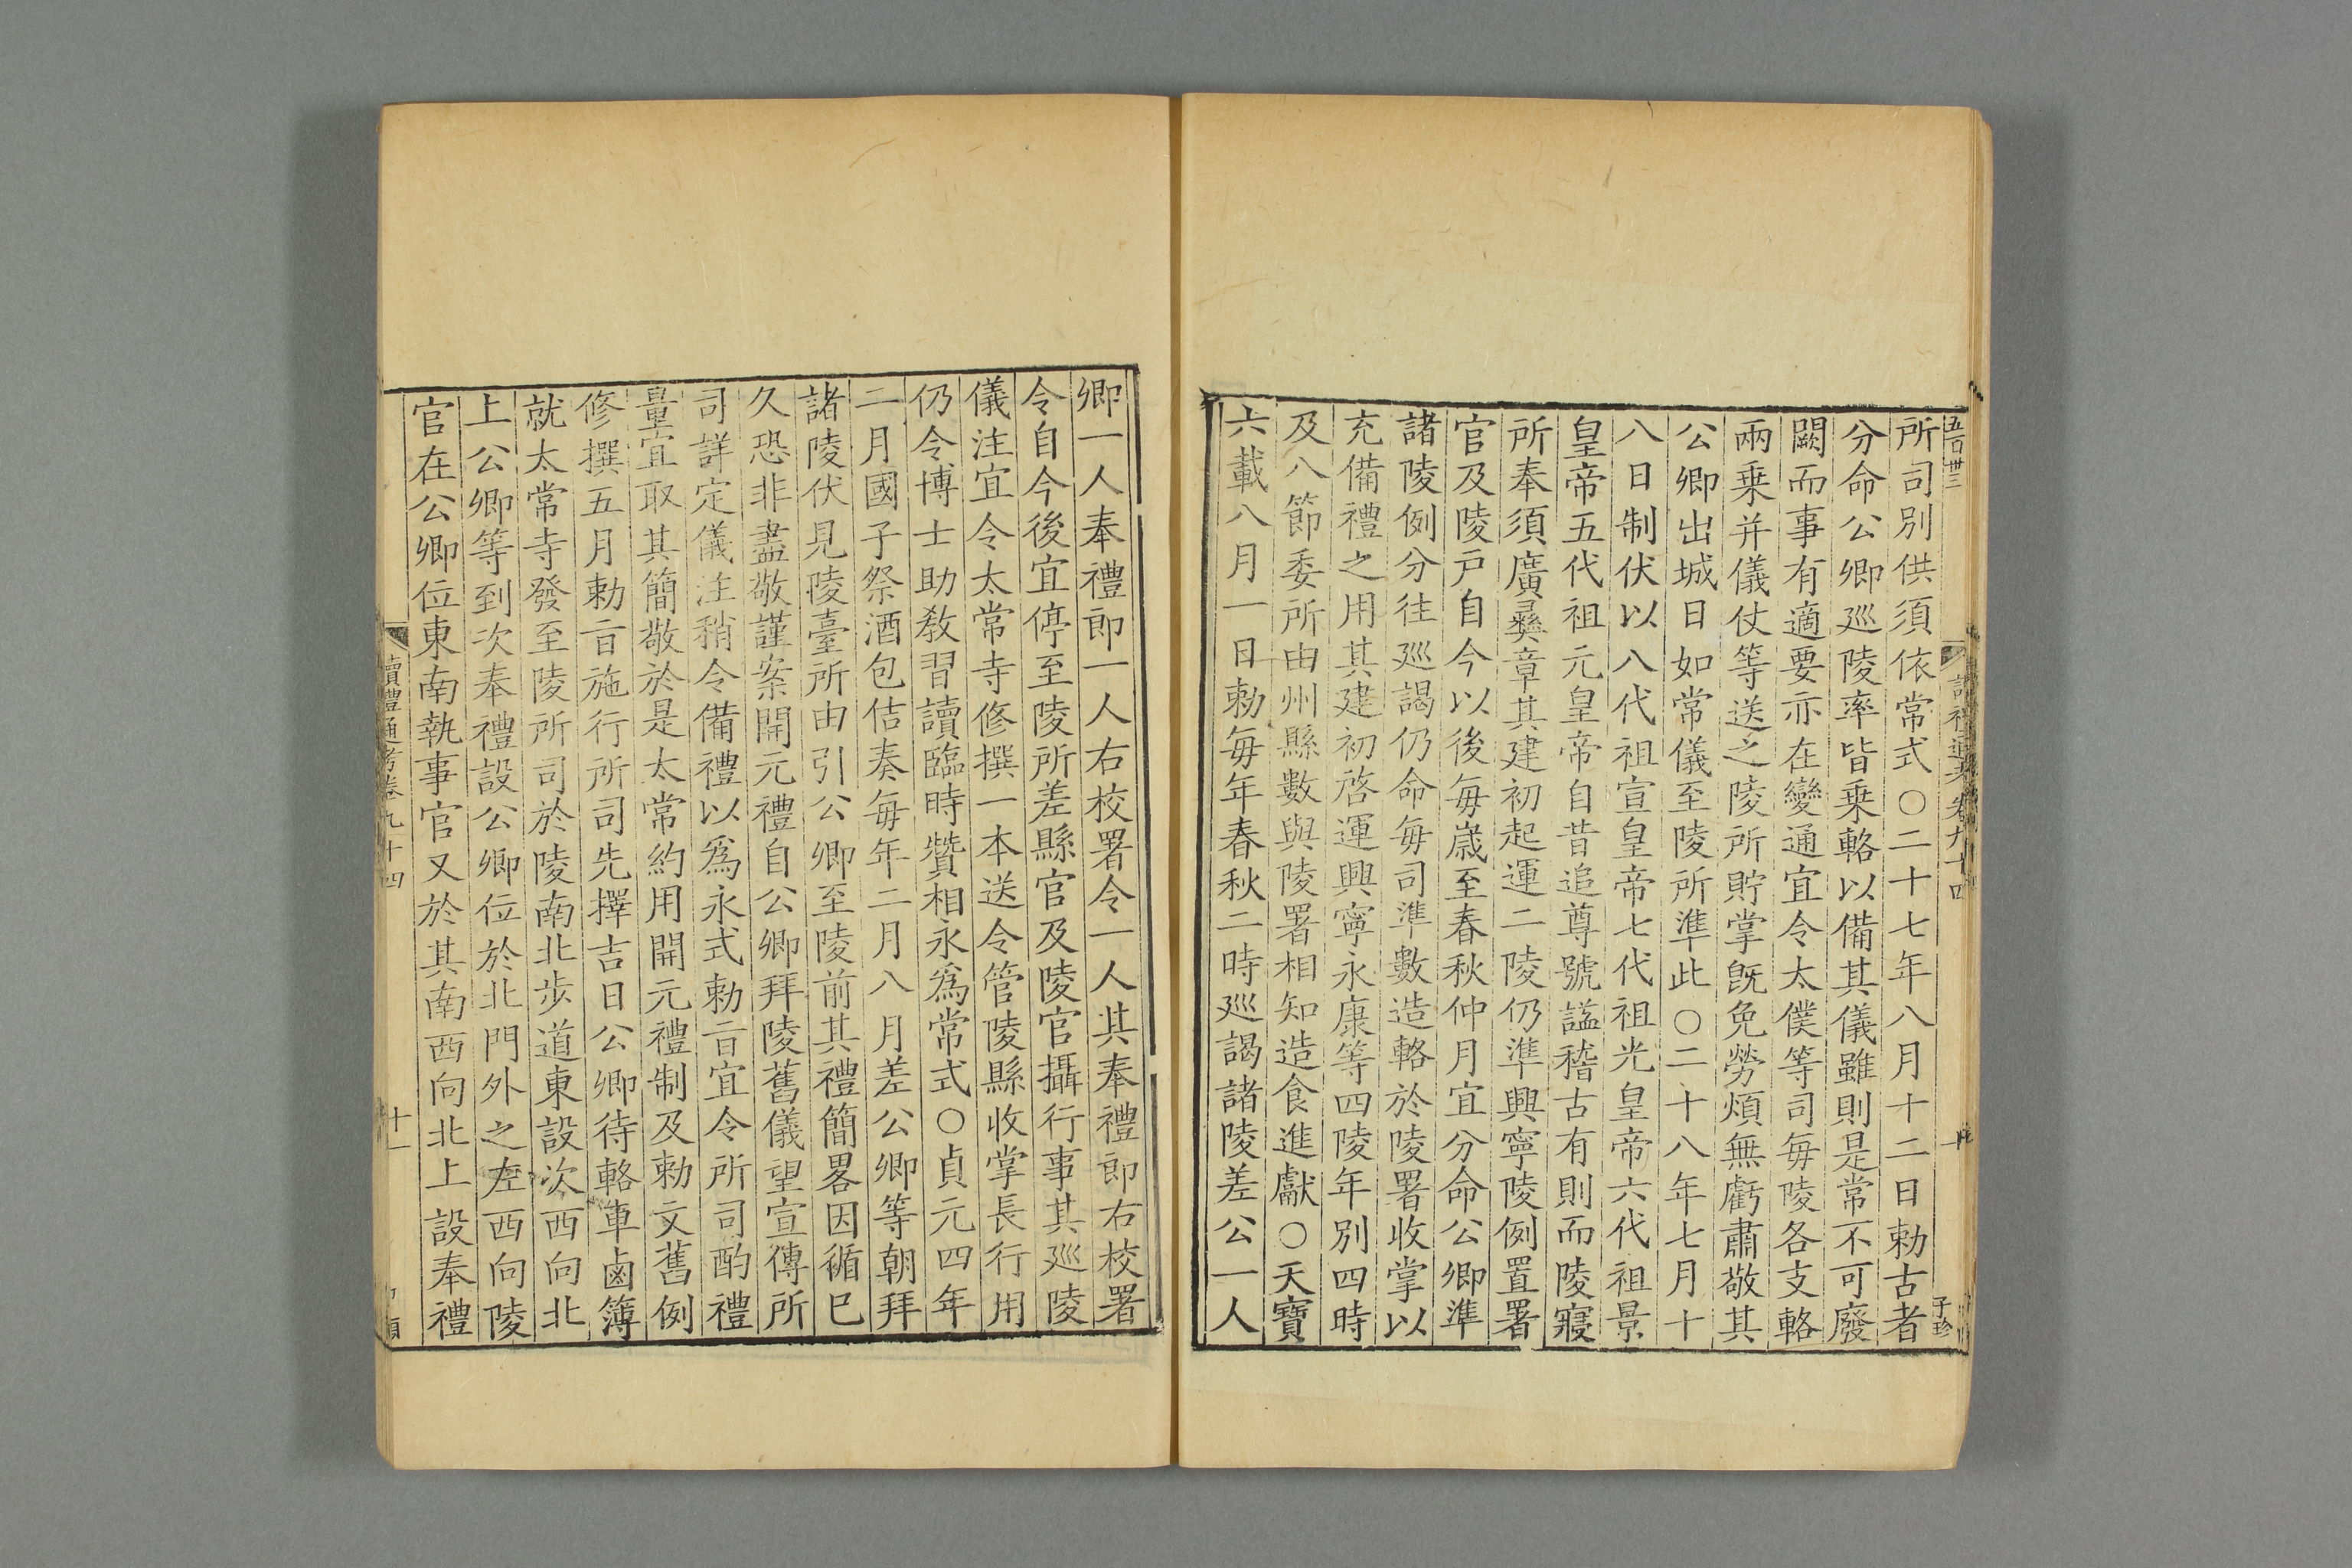 五百卅三
所司別供須依常式○二十七年八月十二日勅古者
分命公卿巡陵率皆乗輅以備其儀雖則是常不可廢
闕而事有適要亦在變通宜令太僕等司每陵各支輅
兩乗并儀仗等送之陵所貯掌旣免勞煩無虧肅敬其
公卿出城日如常儀至陵所準此○二十八年七月十
八日制伏以八代祖宣皇帝七代祖光皇帝六代祖景
皇帝五代祖元皇帝自昔追尊號謚稽古有則而陵寢
所奉須廣彞章其建初起運二陵仍準興寧陵例置署
官及陵戸自今以後每嵗至春秋仲月宜分命公卿準
諸陵例分往巡謁仍命每司準數造輅於陵署收掌以
充備禮之用其建初啓運興寧永康等四陵年別四時
及八節委所由州縣數與陵署相知造食進獻○天寶
六載八月一日勅每年春秋二時巡謁諸陵差公一人
卿一人奉禮郎一人右校署令一人其奉禮郎右校署
令自今後宜停至陵所差縣官及陵官攝行事其巡陵
儀注宜令太常寺修撰一本送令管陵縣收掌長行用
仍令博士助敎習讀臨時贊相永爲常式○貞元四年
二月國子祭酒包佶奏每年二月八月差公卿等朝拜
諸陵伏見陵臺所由引公卿至陵前其禮簡畧因循巳
久恐非盡敬謹案開元禮自公卿拜陵舊儀望宣傳所
司詳定儀注稍令備禮以爲永式勅㫖宜令所司酌禮
量宜取其簡敬於是太常約用開元禮制及勅文舊例
修撰五月勅㫖施行所司先擇吉日公卿待輅車鹵簿
就太常寺發至陵所司於陵南北步道東設次西向北
上公卿等到次奉禮設公卿位於北門外之左西向陵
官在公卿位東南執事官又於其南西向北上設奉禮
讀禮通考卷九十四
十一